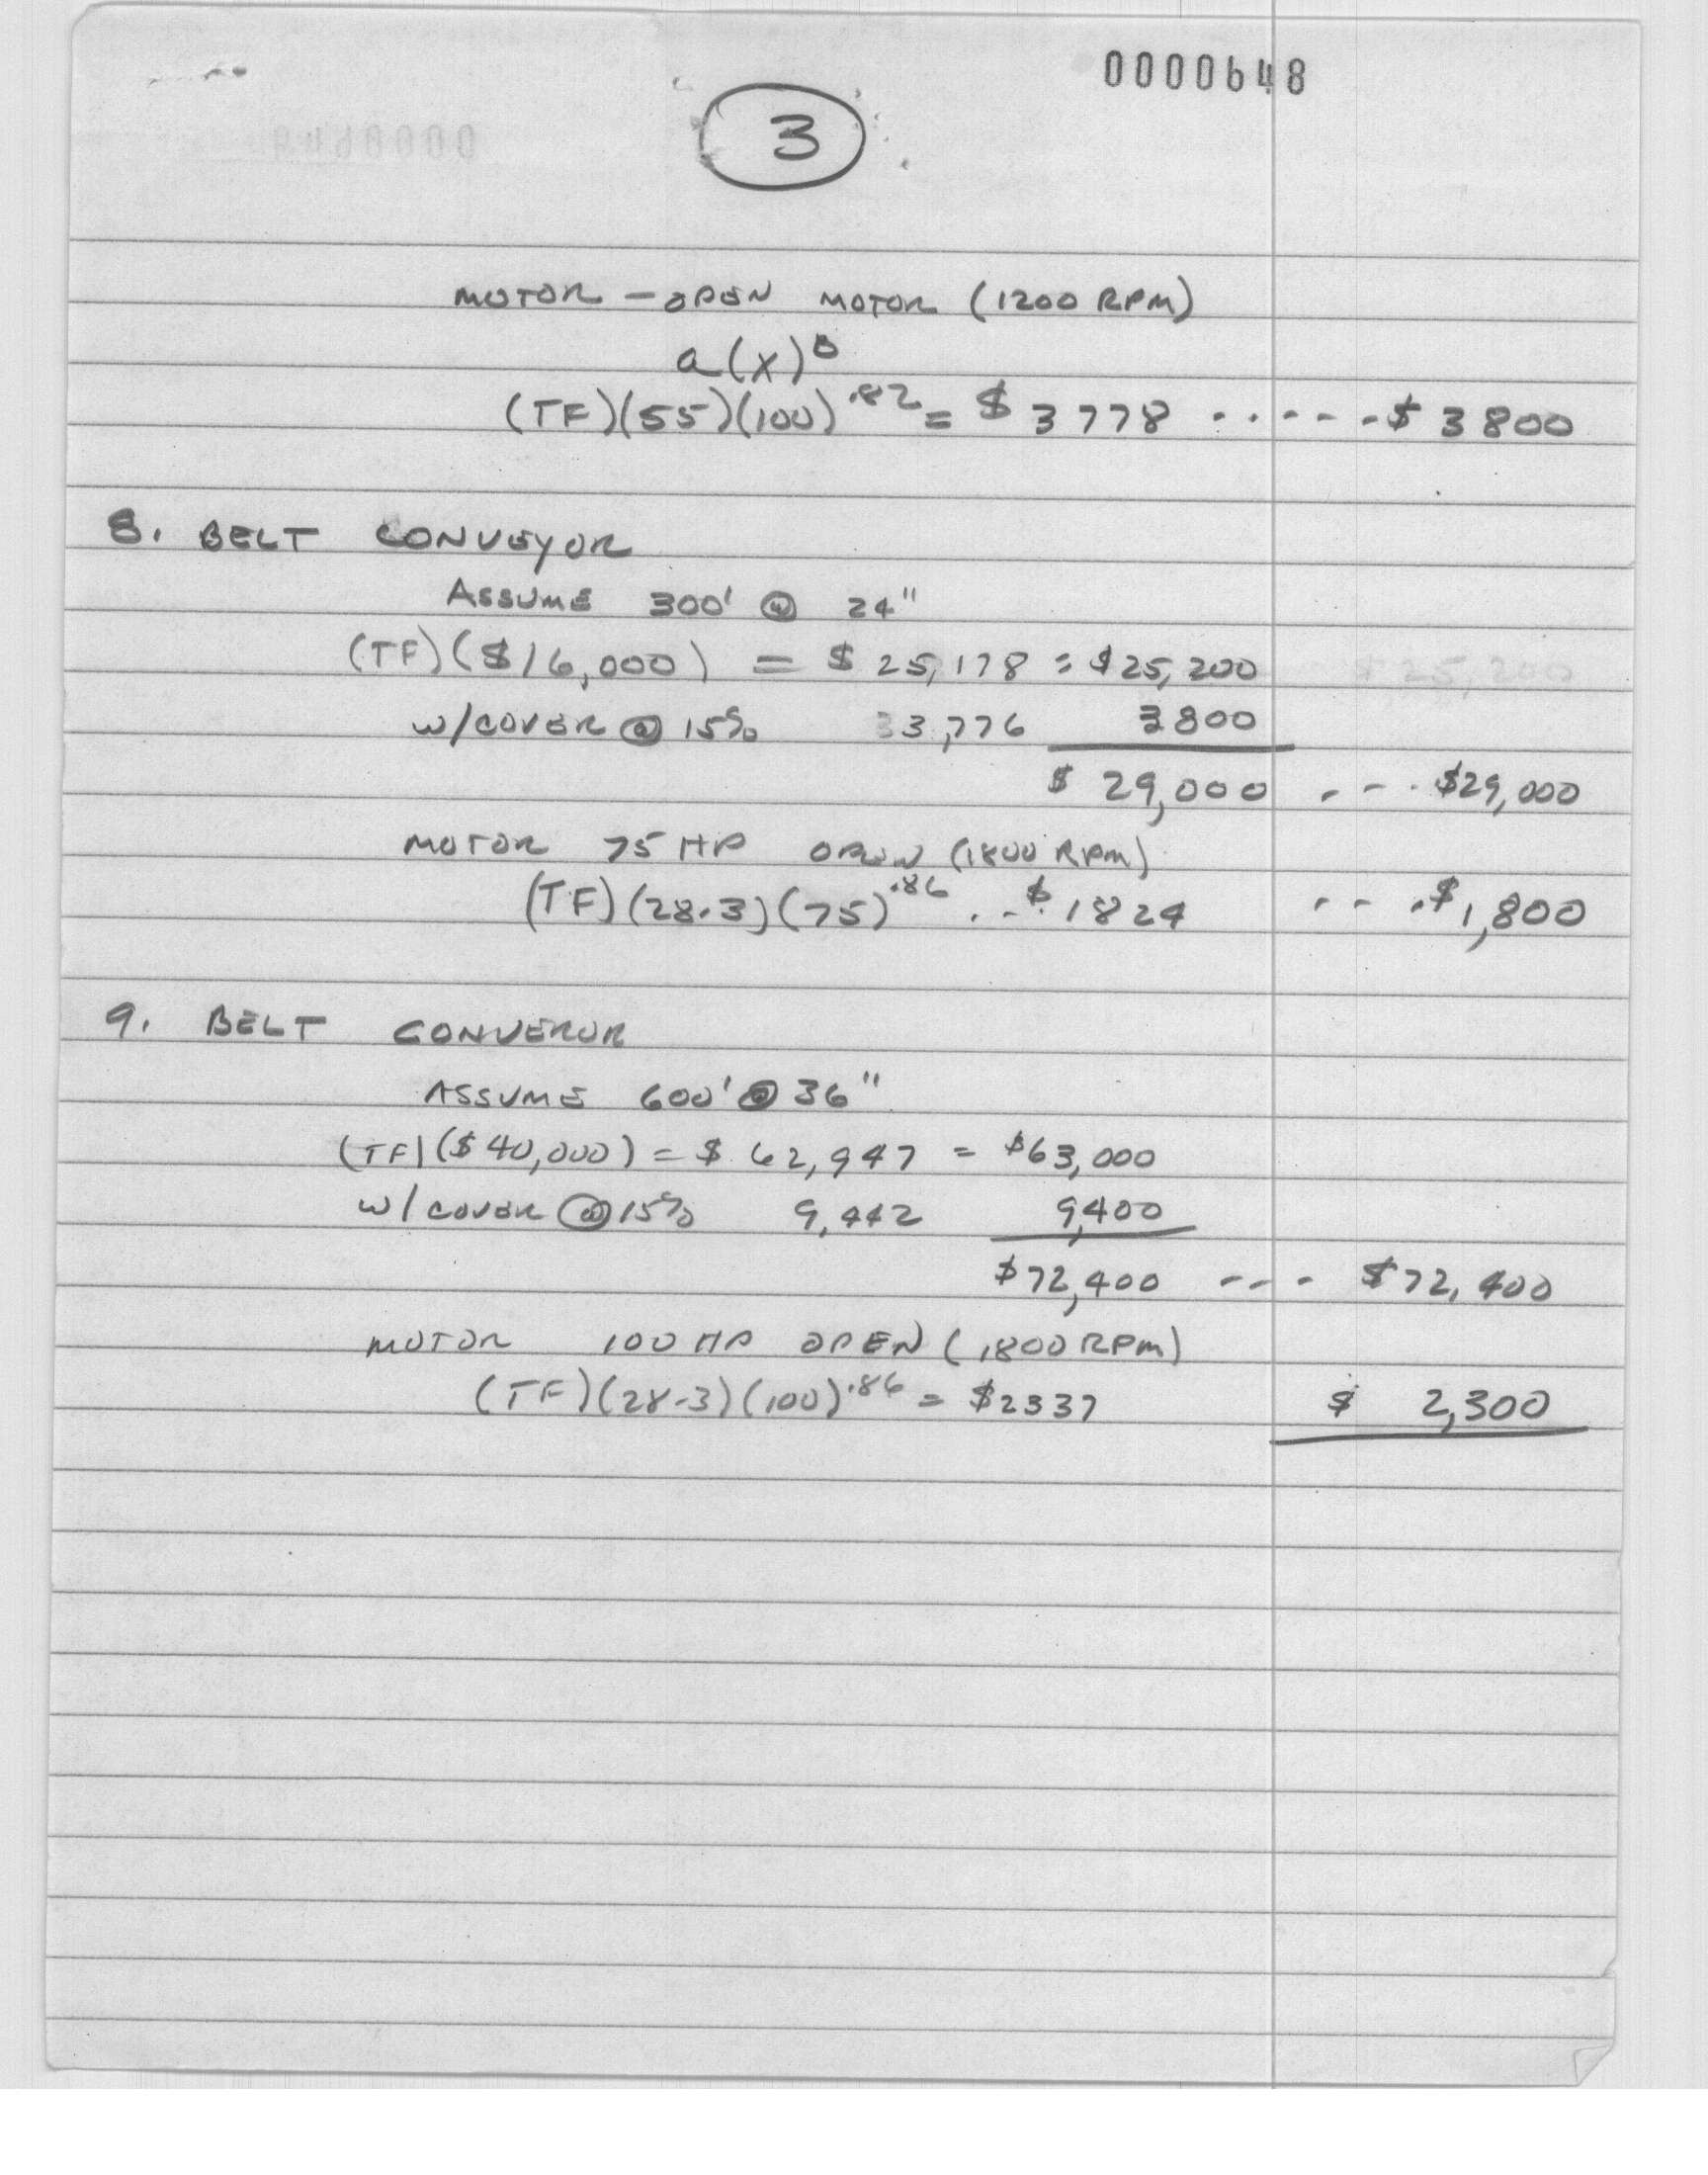 0000648
3
MOTOR - OPEN MOTOR (1200 RPM)
a(x)^b
(TF)(55)(100)^.82 = $3778 ..---$ 3800
8. BELT CONVEYOR
ASSUME 300' @ 24"
(TF)($16,000) = $ 25,178 = $25,200 $25,200
w/COVER @ 15% 33,776 3800
$ 29,000 --. $29,000
MOTOR 75 HP OPEN (1800 RPM)
(TF)(28.3)(75)^.86 ..$ 1824 --.$1,800
9. BELT CONVEROR
ASSUME 600' @ 36"
(TF)($40,000) = $ 62,947 = $63,000
w/COVER @ 15% 9,442 9,400
$72,400 --- $72,400
MOTOR 100 HP OPEN (1800 RPM)
(TF)(28.3)(100)^.86 = $2337 $ 2,300